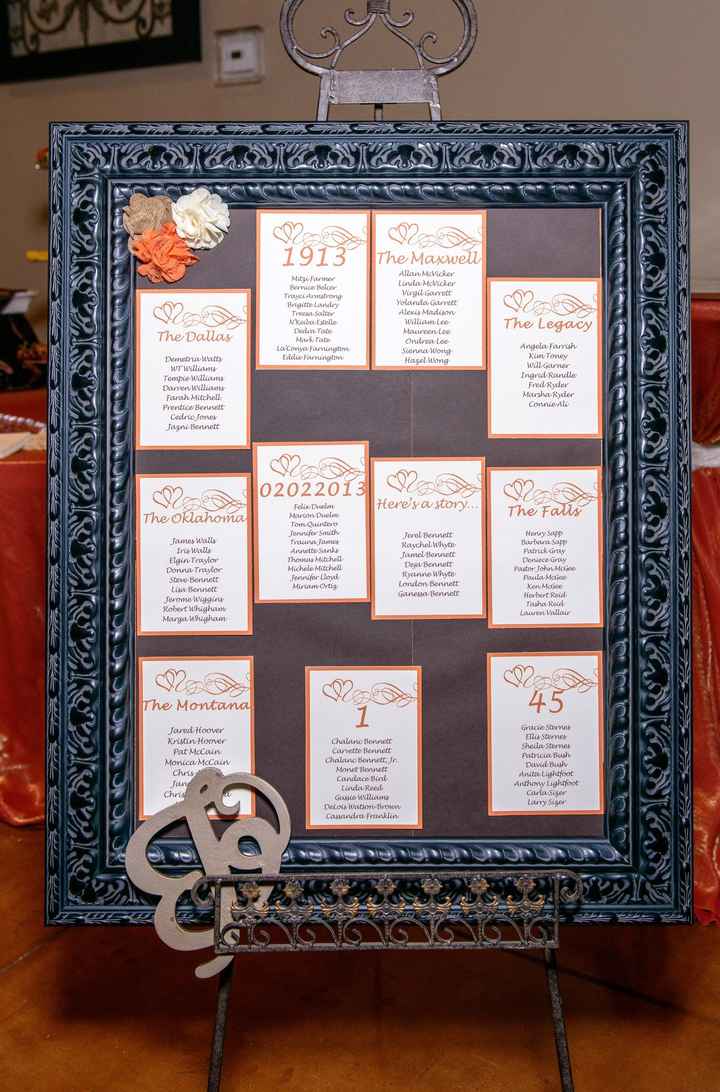 1913
Mitzi Farmer
Bernice Belcer
Trayci Armstrong
Brigitte Landry
Treesa Salter
N'Kaiba Estelle
Dedra Tate
Mark Tate
La'Konya Farnington
Eddie Farnington
The Maxwell
Allan McVicker
Linda McVicker
Virgil Garrett
Yolanda Garrett
Alexis Madison
William Lee
Maureen Lee
Ondrea Lee
Sienna Wong
Hazel Wong
The Legacy
Angela Farrish
Kim Toney
Will Garner
Ingrid Randle
Fred Ryder
Marsha Ryder
Connie Ali
The Dallas
Demetria Watts
WT Williams
Tempie Williams
Darren Williams
Farah Mitchell
Prentice Bennett
Cedric Jones
Jazni Bennett
The Oklahoma
James Walls
Iris Walls
Elgin Traylor
Donna Traylor
Steve Bennett
Lisa Bennett
Jerome Wiggins
Robert Whigham
Marga Whigham
02022013
Felix Duelm
Marion Duelm
Tom Quintero
Jennifer Smith
Trauna James
Annette Sanks
Thomas Mitchell
Michele Mitchell
Jennifer Lloyd
Miriam Ortiz
Here's a story...
Jerel Bennett
Raychel Whyte
Jamel Bennett
Deja Bennett
Ryanne Whyte
London Bennett
Ganessa Bennett
The Falls
Henry Sapp
Barbara Sapp
Patrick Gray
Deniece Gray
Pastor John McGee
Paula McGee
Ken McGee
Herbert Reid
Tasha Reid
Lauren Vallair
The Montana
Jared Hoover
Kristin Hoover
Pat McCain
Monica McCain
1
Chalanc Bennett
Carvette Bennett
Chalanc Bennett, Jr.
Monet Bennett
Candace Bird
Linda Reed
Gussie Williams
DeLois Watson-Brown
Cassandra Franklin
45
Gracie Sternes
Ellis Sternes
Sheila Sternes
Patricia Bush
David Bush
Anita Lightfoot
Anthony Lightfoot
Carla Sizer
Larry Sizer